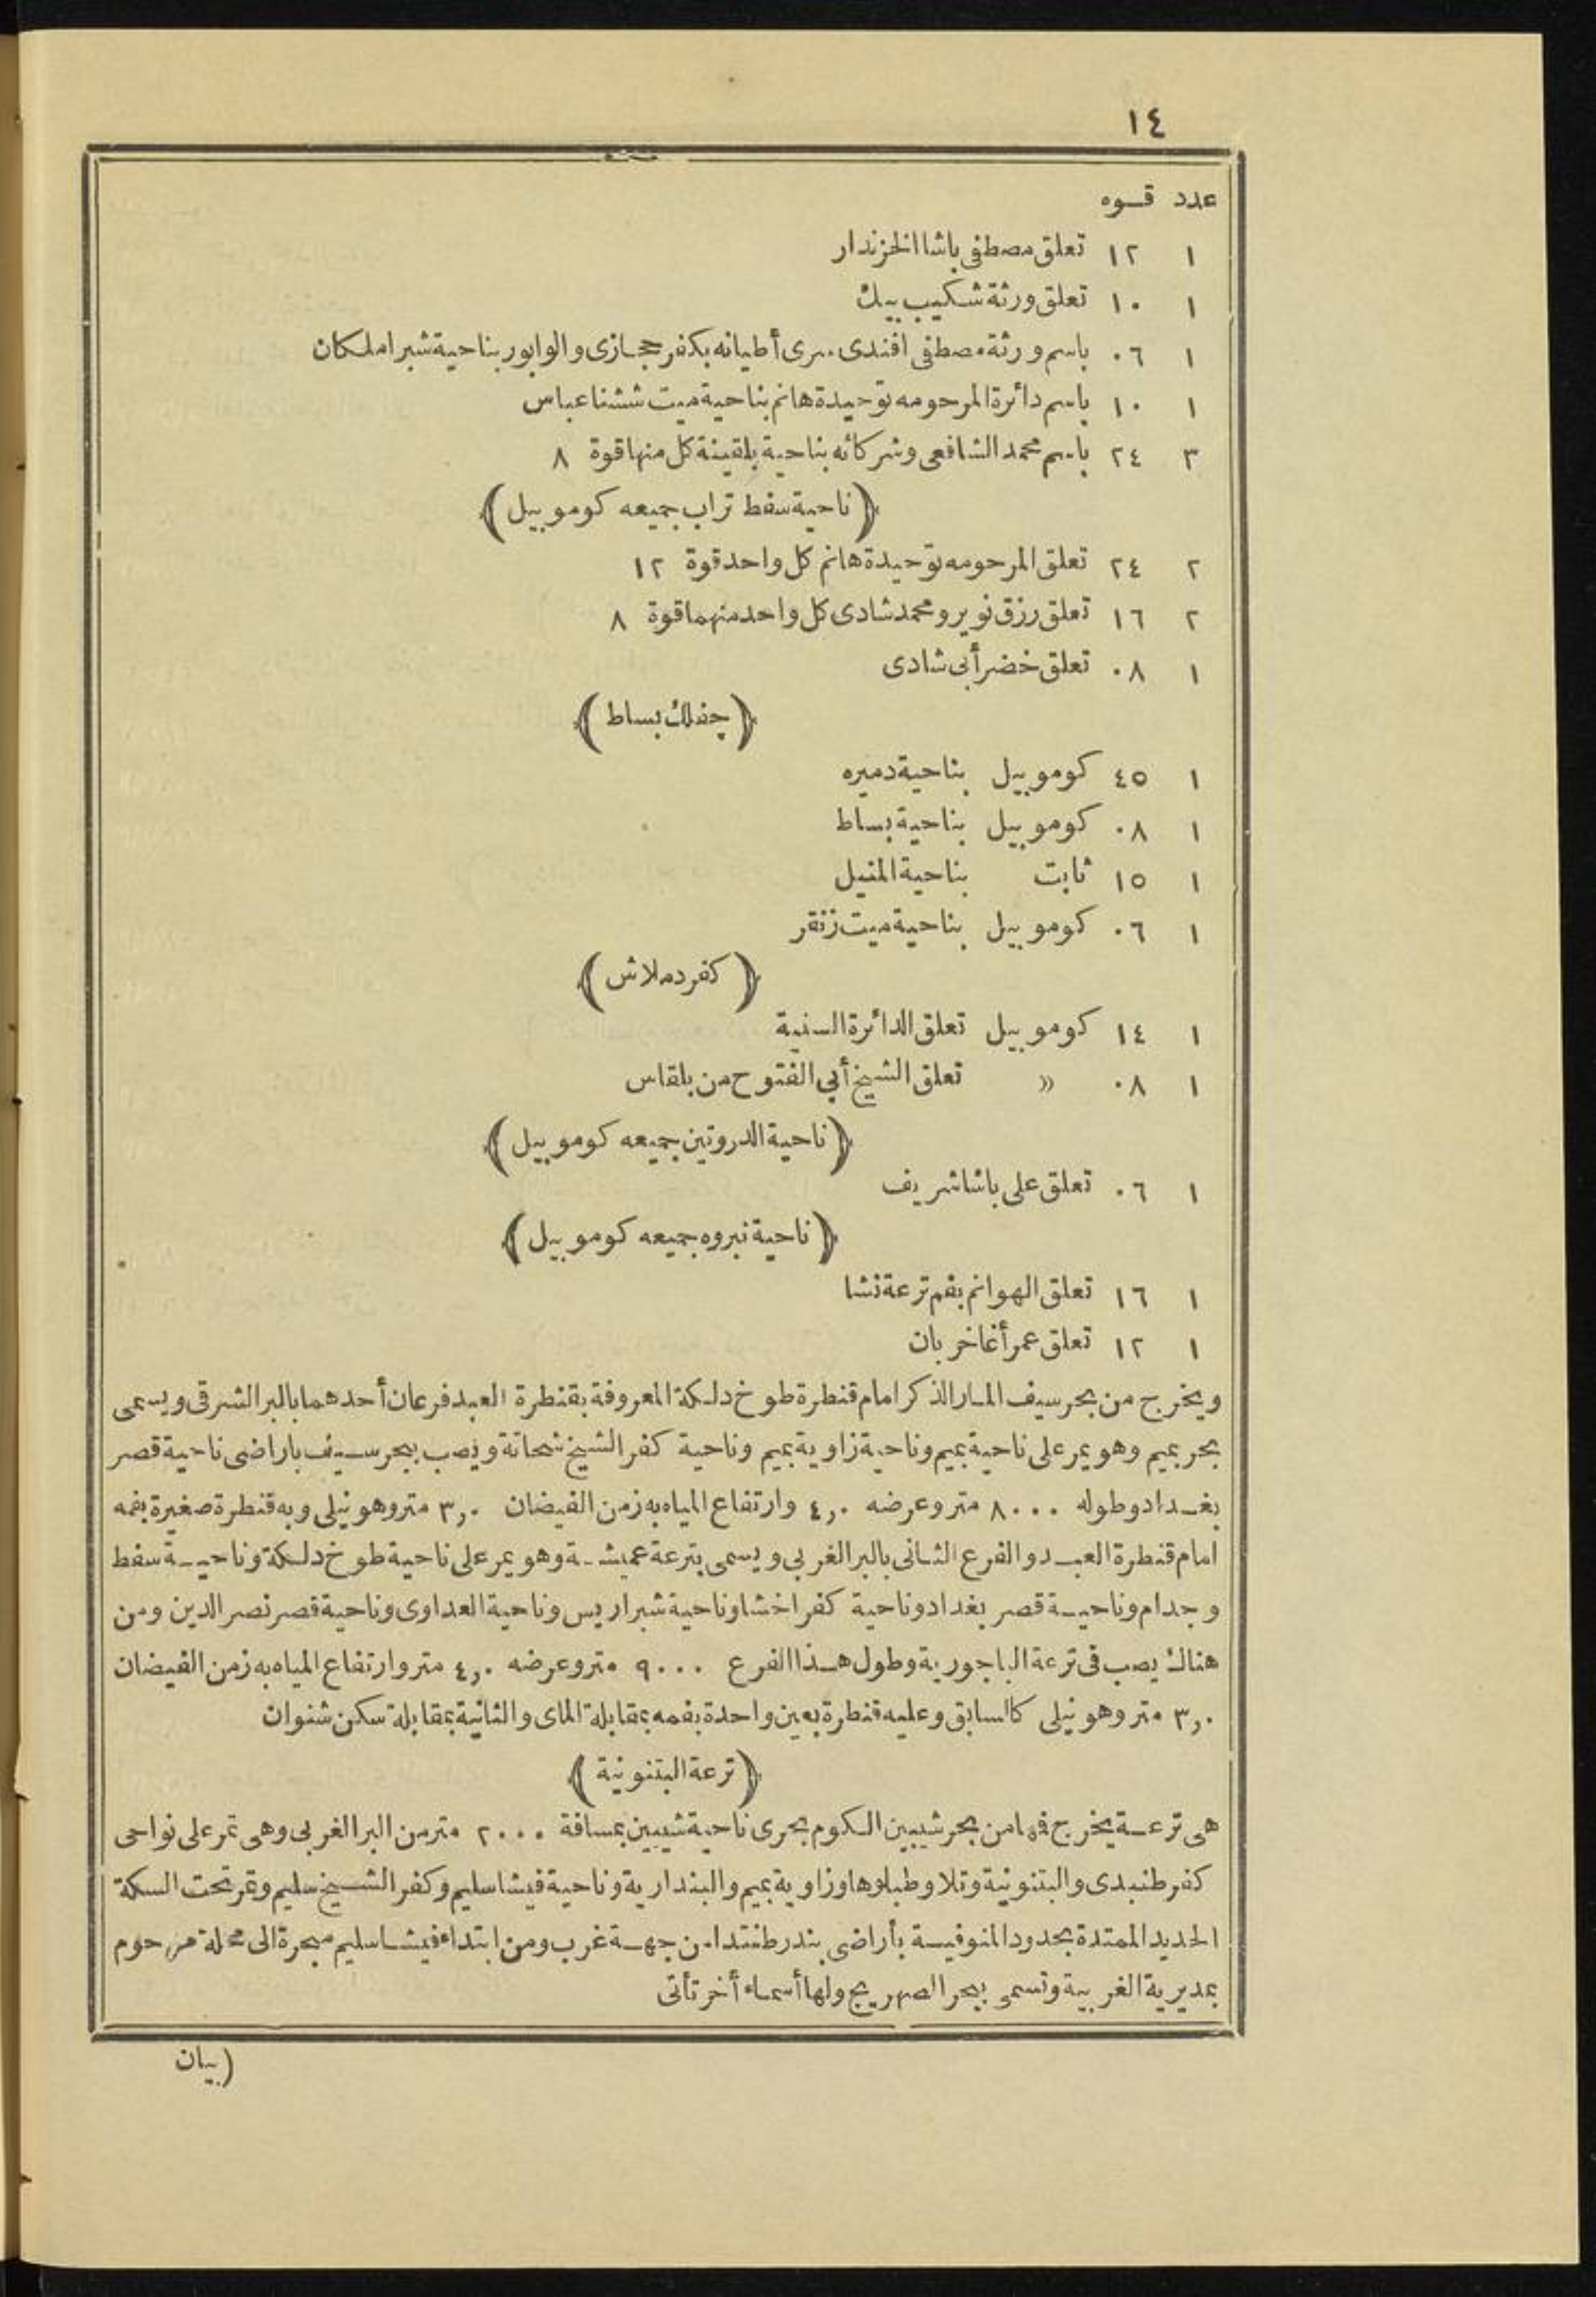 ١٤
عدد قوه
١ ١٢ تعلق مصطفى باشا الخزندار
١ ١٠ تعلق ورثة شكيب بيك
١ ٠٦ باسم ورثة مصطفى افندى سرى أطيانه بكفر حجازى والوابور بناحية شبرا ملكان
١ ١٠ باسم دائرة المرحومه توحيدة هانم بناحية ميت ششنا عباس
٣ ٢٤ باسم محمد الشافعى وشركائه بناحية بلقينة كل منها قوة ٨
(ناحية سفط تراب جميعه كوموبيل)
٢ ٢٤ تعلق المرحومه توحيدة هانم كل واحد قوة ١٢
٢ ١٦ تعلق رزق نوير ومحمد شادى كل واحد منهما قوة ٨
١ ٠٨ تعلق خضر أبى شادى
(چفلك بساط)
١ ٤٥ كوموبيل بناحية دميره
١ ٠٨ كوموبيل بناحية بساط
١ ١٥ ثابت بناحية المنيل
١ ٠٦ كوموبيل بناحية ميت زنقر
(كفر دملاش)
١ ١٤ كوموبيل تعلق الدائرة السنية
١ ٠٨ » تعلق الشيخ أبى الفتوح من بلقاس
(ناحية الدروتين جميعه كوموبيل)
١ ٠٦ تعلق على باشا شريف
(ناحية نبروه جميعه كوموبيل)
١ ١٦ تعلق الهوانم بفم ترعة نشا
١ ١٢ تعلق عمر أغا خربان
ويخرج من بحر سيف المار الذكر امام قنطرة طوخ دلكة المعروفة بقنطرة العبد فرعان أحدهما بالبر الشرقى ويسمى
بحر بميم وهو يمر على ناحية بميم وناحية زاوية بميم وناحية كفر الشيخ شحاتة ويصب ببحر سيف باراضى ناحية قصر
بغداد وطوله ٨٠٠٠ متر وعرضه ٤,٠ وارتفاع المياه به زمن الفيضان ٣,٠ متر وهو نيلى وبه قنطرة صغيرة بفمه
امام قنطرة العبد والفرع الثانى بالبر الغربى ويسمى بترعة عميشة وهو يمر على ناحية طوخ دلكة وناحية سفط
وجدام وناحية قصر بغداد وناحية كفر اخشا وناحية شبراريس وناحية العداوى وناحية قصر نصر الدين ومن
هناك يصب فى ترعة الباجورية وطول هذا الفرع ٩٠٠٠ متر وعرضه ٤,٠ متر وارتفاع المياه به زمن الفيضان
٣,٠ متر وهو نيلى كالسابق وعليه قنطرة بعين واحدة بفمه بمقابلة الماى والثانية بمقابلة سكن شنوان
(ترعة البتنونية)
هى ترعة يخرج فمها من بحر شيبين الكوم بحرى ناحية شيبين بمسافة ٢٠٠٠ متر من البر الغربى وهى تمر على نواحى
كفر طنبدى والبتنونية وتلا وطبلوها وزاوية بميم والبندارية وناحية فيشا سليم وكفر الشيخ سليم وتمر تحت السكة
الحديد الممتدة بحدود المنوفية بأراضى بندر طنتدا من جهة غرب ومن ابتداء فيشا سليم مبحرة الى محلة مرحوم
بمديرية الغربية وتسمى ببحر الصهريج ولها أسماء أخر تأتى
(بيان